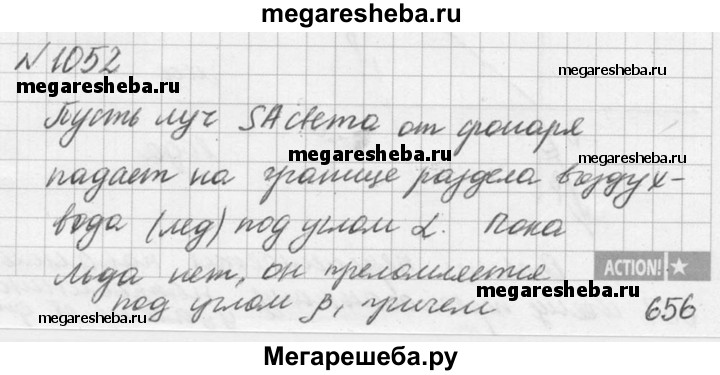 megaresheba.ru
№1052
megaresheba.ru
megaresheba.ru
Пусть луч SA света от фонаря
megaresheba.ru
megaresheba.ru
падает на границе раздела воздух-
вода (лед) под углом α. Пока
льда нет, он преломляется
ACTION!
megaresheba.ru
под углом β, причем
656
megaresheba.ru
Мегарешеба.ру